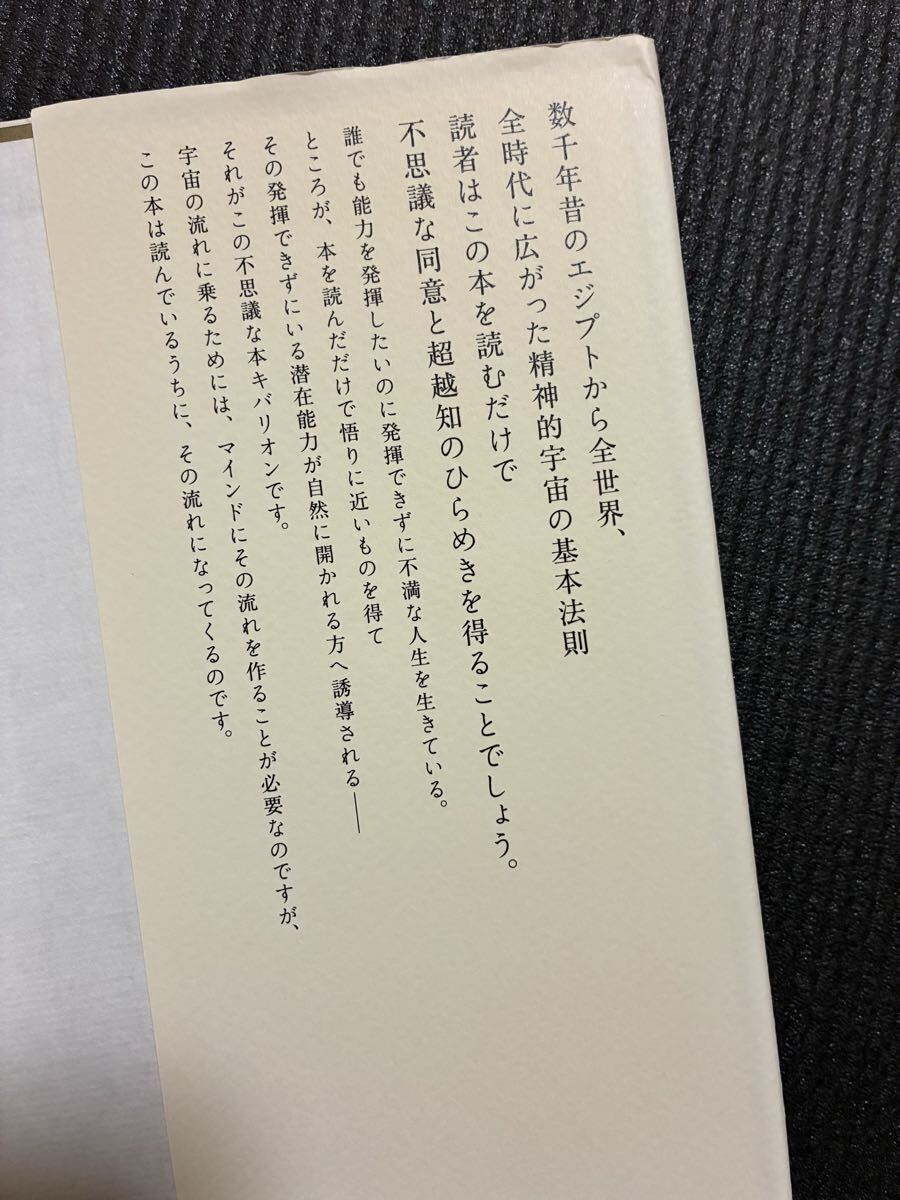 数千年昔のエジプトから全世界、
全時代に広がった精神的宇宙の基本法則
読者はこの本を読むだけで
不思議な同意と超越知のひらめきを得ることでしょう。
誰でも能力を発揮したいのに発揮できずに不満な人生を生きている。
ところが、本を読んだだけで悟りに近いものを得て
その発揮できずにいる潜在能力が自然に開かれる方へ誘導される――
それがこの不思議な本キバリオンです。
宇宙の流れに乗るためには、マインドにその流れを作ることが必要なのですが、
この本は読んでいるうちに、その流れになってくるのです。